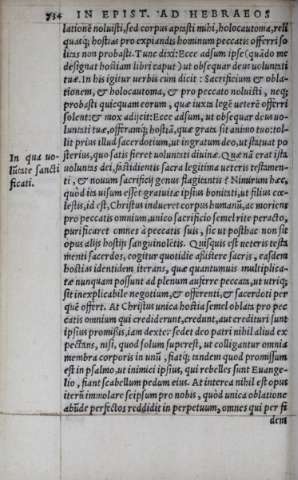 734 IN EPIST. AD HEBRAEOS
lationē noluisti, sed corpus aptasti mihi, holocautoma, reli
quasq́; hostias pro expiandis hominum peccatis offerri so
litas non probasti. Tunc dixi: Ecce adsum ipse (quādo me
designat hostiam libri caput) ut obsequar deus uoluntati
tuæ. In his igitur uerbis cum dicit: Sacrificium & obla-
tionem, & holocautoma, & pro peccato noluisti, neq;
probasti quicquam eorum, quæ iuxta legē ueterē offerri
solent: & mox adijcit: Ecce adsum, ut obsequar deus uo-
luntati tuæ, offeramq́; hostiā, quæ grata sit animo tuo: tol-
lit prius illud sacerdotium, ut ingratum deo, ut statuat po
sterius, quo satis fieret uoluntati diuinæ. Quæ nā erat ista
In qua uo-
lūtate sancti
ficati.
uoluntas dei, fastidientis sacra legitima ueteris testamen-
ti, & nouum sacrificij genus flagitantis? Nimirum hæc,
quod ita uisum esset gratuitæ ipsius bonitati, ut filius cæ-
lestis, id est, Christus indueret corpus humanū, ac moriens
pro peccatis omnium, unico sacrificio semel rite peracto,
purificaret omnes à peccatis suis, sic ut posthac non sit
opus alijs hostijs sanguinolētis. Quisquis est ueteris testa
menti sacerdos, cogitur quotidie assistere sacris, easdem
hostias identidem iterans, quæ quantumuis multiplica-
tæ nunquam possunt ad plenum auferre peccata, ut utriq́;
sit inexplicabile negotium, & offerenti, & sacerdoti per
quē offert. At Christus unica hostia semel oblata pro pec
catis omnium qui crediderunt, credunt, aut credituri sunt
ipsius promissis, iam dexter sedet deo patri nihil aliud ex
pectans, nisi, quod solum superest, ut colligantur omnia
membra corporis in unū, fiatq́; tandem quod promissum
est in psalmo, ut inimici ipsius, qui rebelles sunt Euange-
lio, fiant scabellum pedum eius. At interea nihil est opus
iterū immolare seipsum pro nobis, quod unica oblatione
abūde perfectos reddidit in perpetuum, omnes qui per fi
dem